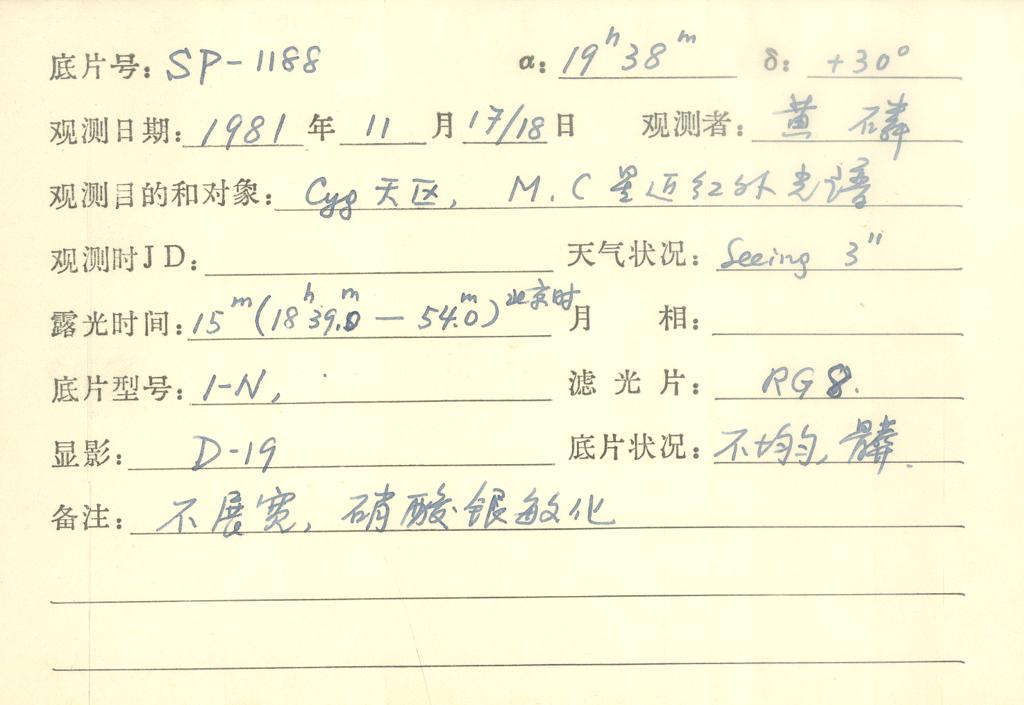 底片号: SP-1188 α: 19ʰ38ᵐ δ: +30°
观测日期: 1981 年 11 月 17/18 日 观测者: 黄磷
观测目的和对象: Cyg 天区, M.C 星近红外光谱
观测时JD: 天气状况: Seeing 3"
露光时间: 15ᵐ(18ʰ39.ᵐ0 — 54.ᵐ0)北京时 月 相:
底片型号: I-N, 滤光片: RG8.
显影: D-19 底片状况: 不均匀, 髒.
备注: 不展宽, 硝酸银敏化